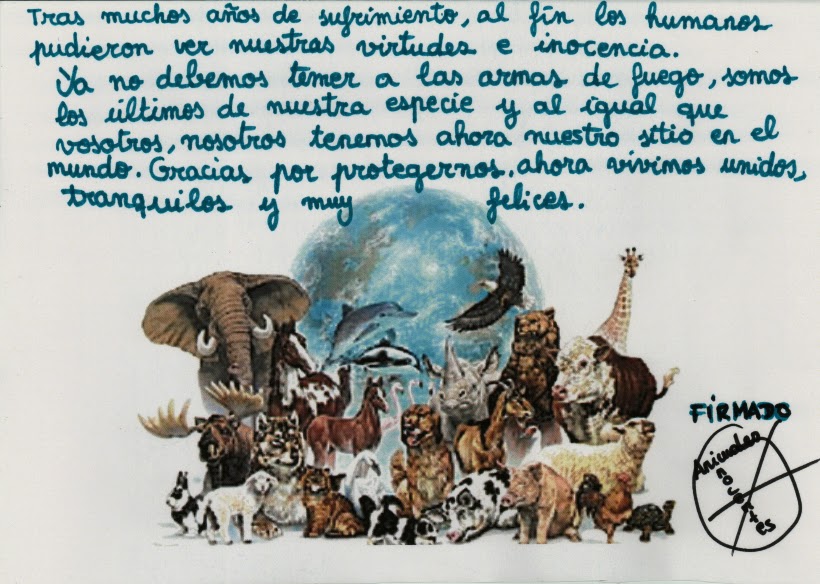 Tras muchos años de sufrimiento, al fin los humanos
pudieron ver nuestras virtudes e inocencia.
Ya no debemos temer a las armas de fuego, somos
los últimos de nuestra especie y al igual que
vosotros, nosotros tenemos ahora nuestro sitio en el
mundo. Gracias por protegernos. ahora vivimos unidos,
tranquilos y muy felices.
FIRMADO
Animales
inocentes